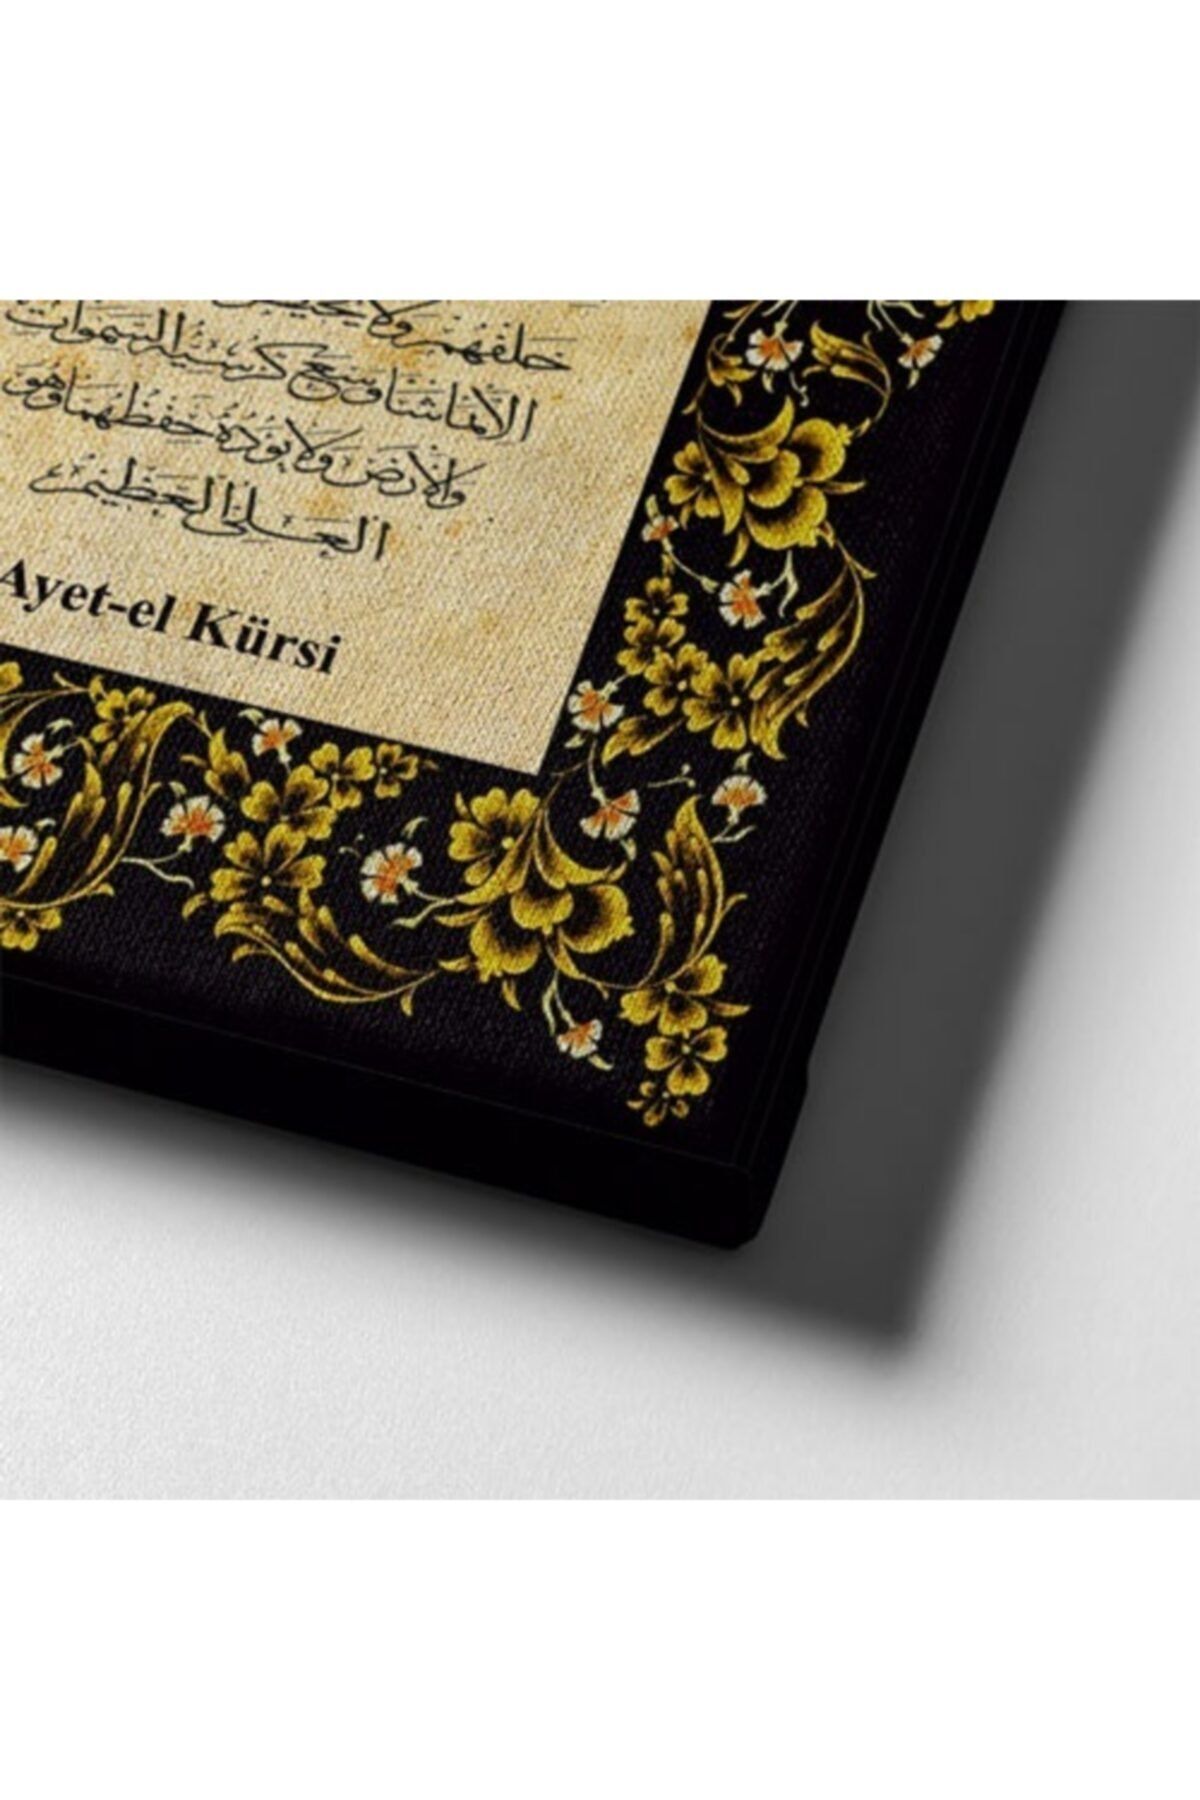 خَلْفَهُمْ وَلَا يُحِيطُ
إِلَّا بِمَا شَاءَ وَسِعَ كُرْسِيُّهُ السَّمَوَاتِ
وَالْأَرْضَ وَلَا يَؤُدُهُ حِفْظُهُمَا وَهُوَ
الْعَلِيُّ الْعَظِيمُ
Ayet-el Kürsi